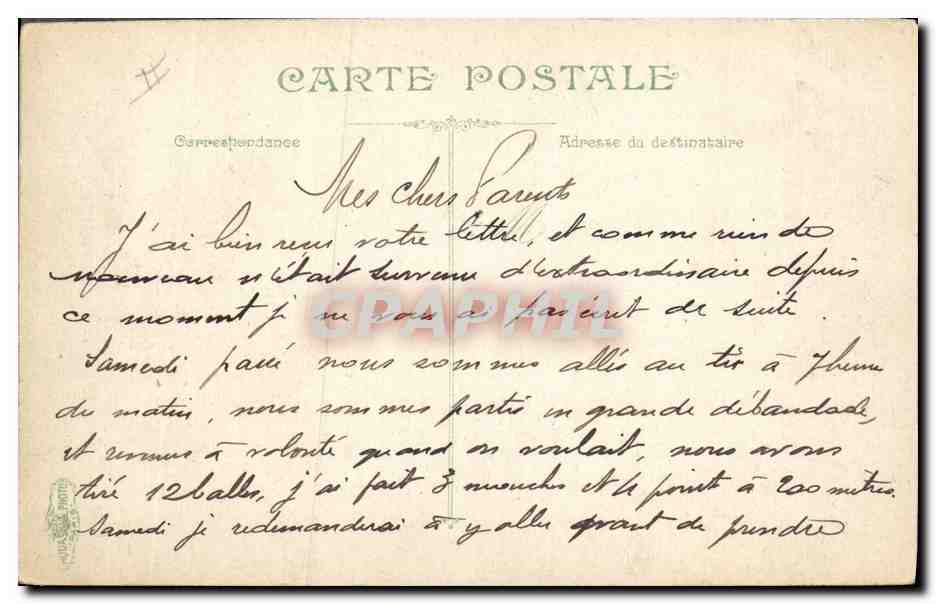 CARTE POSTALE
Correspondance
Adresse du destinataire
Mes chers Parents
J'ai bien reçu votre lettre, et comme rien de
nouveau n'était survenu d'extraordinaire depuis
ce moment je ne vous ai pas écrit de suite.
Samedi passé nous sommes allés au tir à 7 heure
du matin, nous sommes partis en grande débandade,
et revenus à volonté quand on voulait, nous avons
tiré 12 balles, j'ai fait 3 mouches et 4 points à 200 mètres.
Samedi je redemanderai à y aller avant de prendre
CPAPHIL
PHOTO